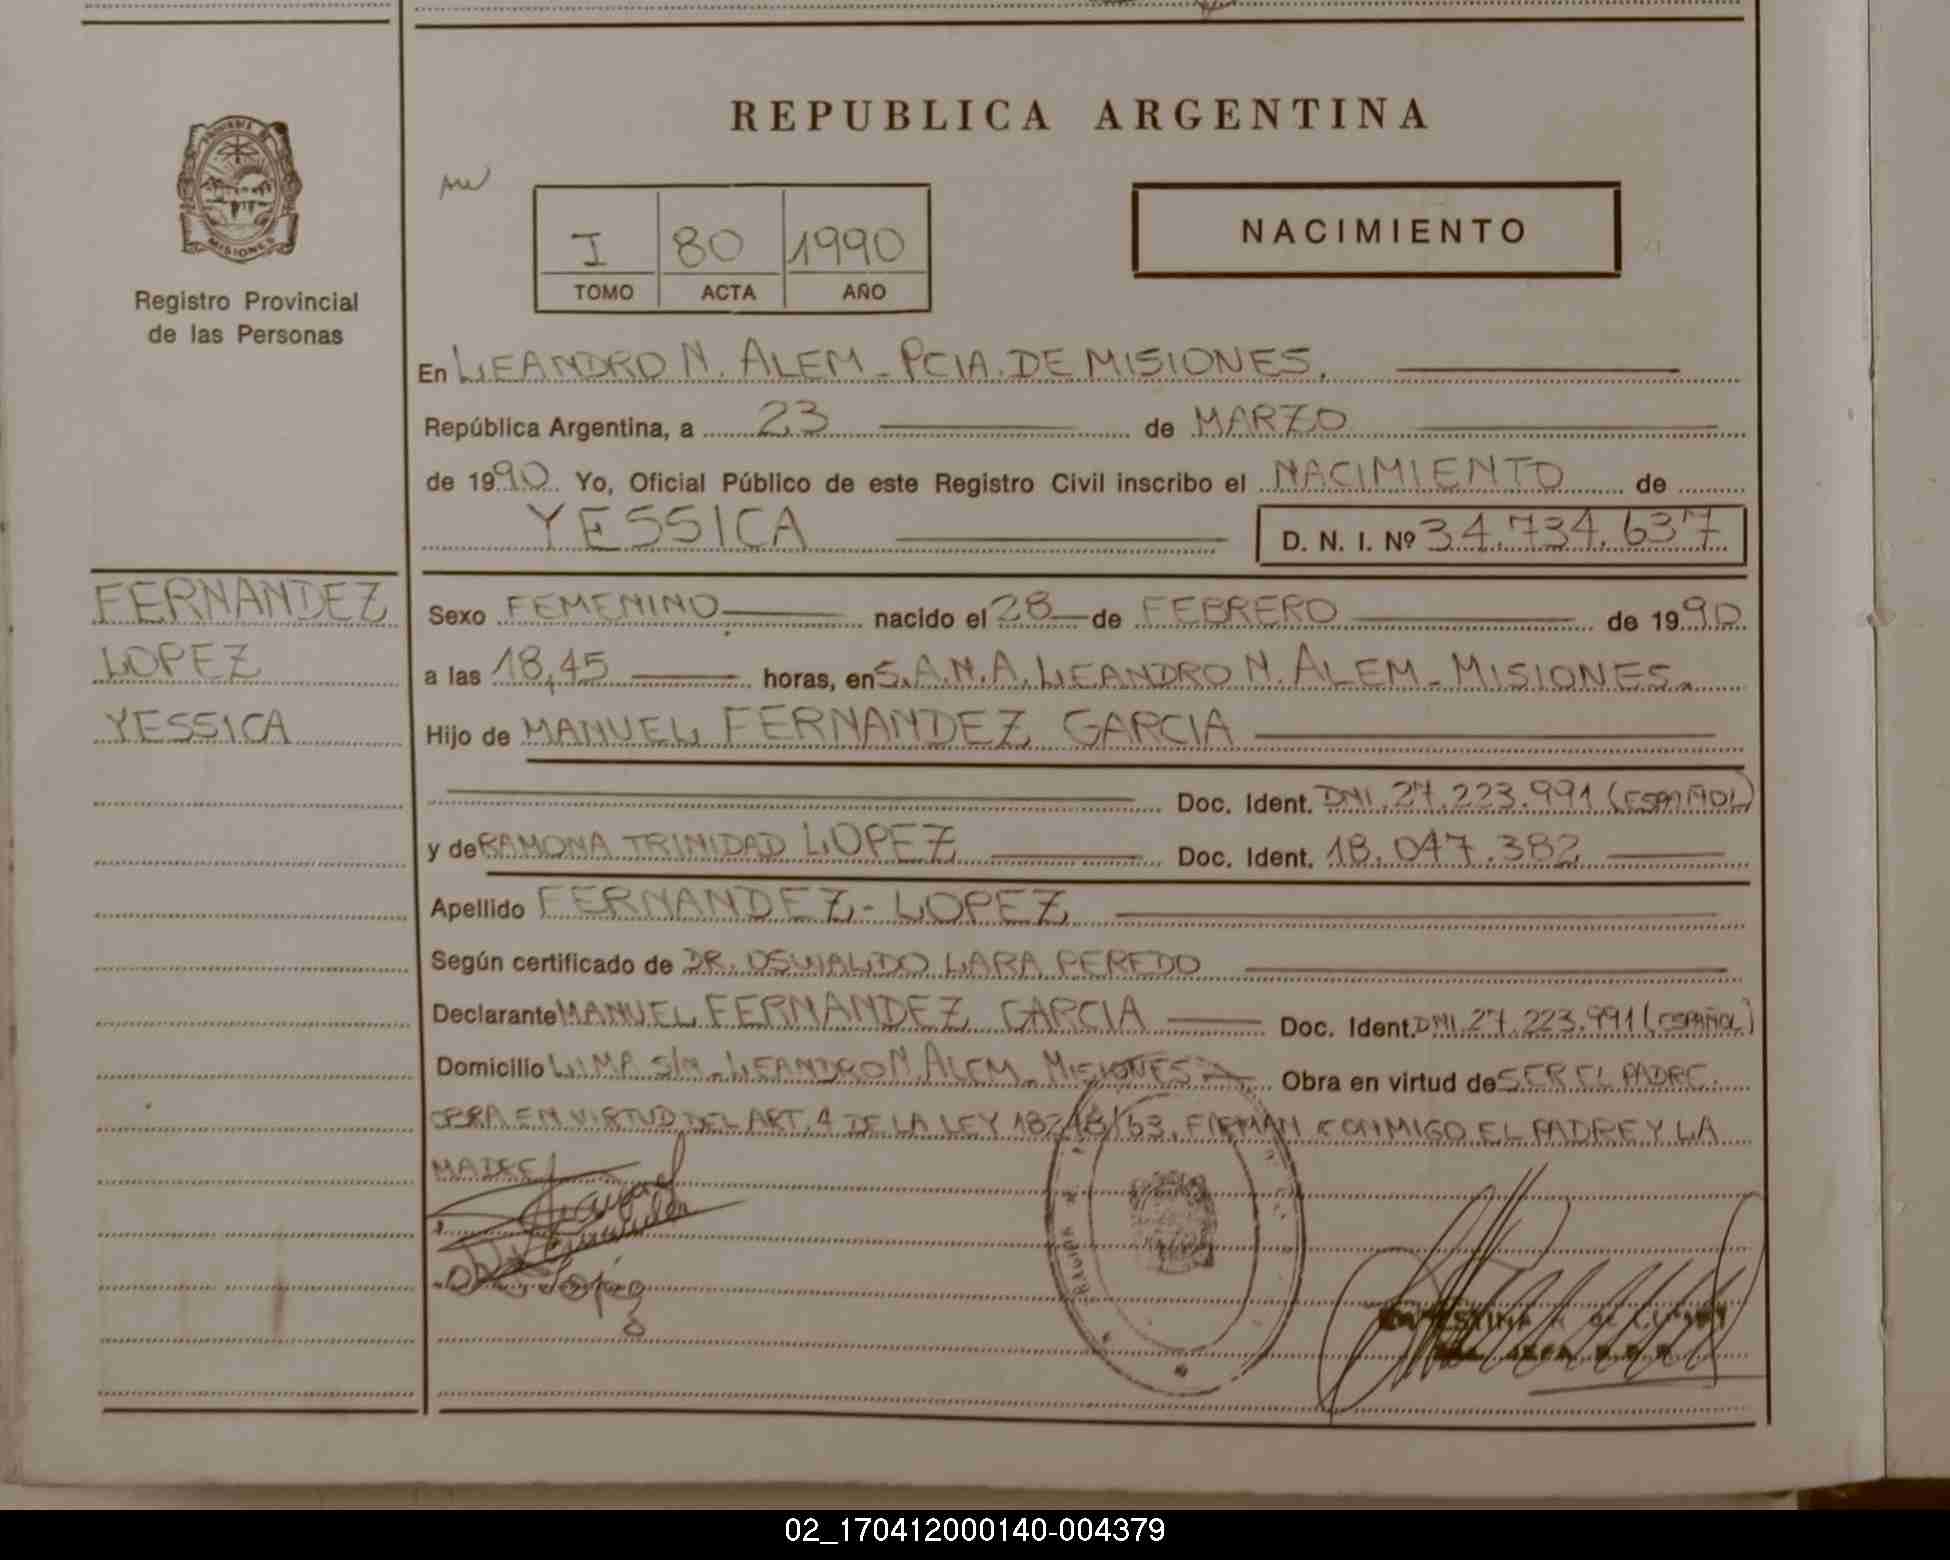 REPUBLICA ARGENTINA
PROVINCIA DE
MISIONES
Registro Provincial
de las Personas
I 80 1990
TOMO ACTA AÑO
NACIMIENTO
En LEANDRO N. ALEM - PCIA. DE MISIONES.
República Argentina, a 23 de MARZO
de 1990 Yo, Oficial Público de este Registro Civil inscribo el NACIMIENTO de
YESSICA D. N. I. Nº 34.734.637
FERNANDEZ
LOPEZ
YESSICA
Sexo FEMENINO nacido el 28 de FEBRERO de 1990
a las 18,45 horas, en S.A.N.A. LEANDRO N. ALEM - MISIONES.
Hijo de MANUEL FERNANDEZ GARCIA
Doc. Ident. DNI. 27.223.991 (ESPAÑOL)
y de RAMONA TRINIDAD LOPEZ Doc. Ident. 18.047.382
Apellido FERNANDEZ - LOPEZ
Según certificado de DR. OSWALDO LARA PEREDO
Declarante MANUEL FERNANDEZ GARCIA Doc. Ident. DNI. 27.223.991 (ESPAÑOL)
Domicilio LIMA S/N - LEANDRO N ALEM - MISIONES Obra en virtud de SER EL PADRE.
OBRA EN VIRTUD DEL ART. 4 DE LA LEY 18248/63. FIRMAN CONMIGO EL PADRE Y LA
MADRE
Lopez
02_170412000140-004379